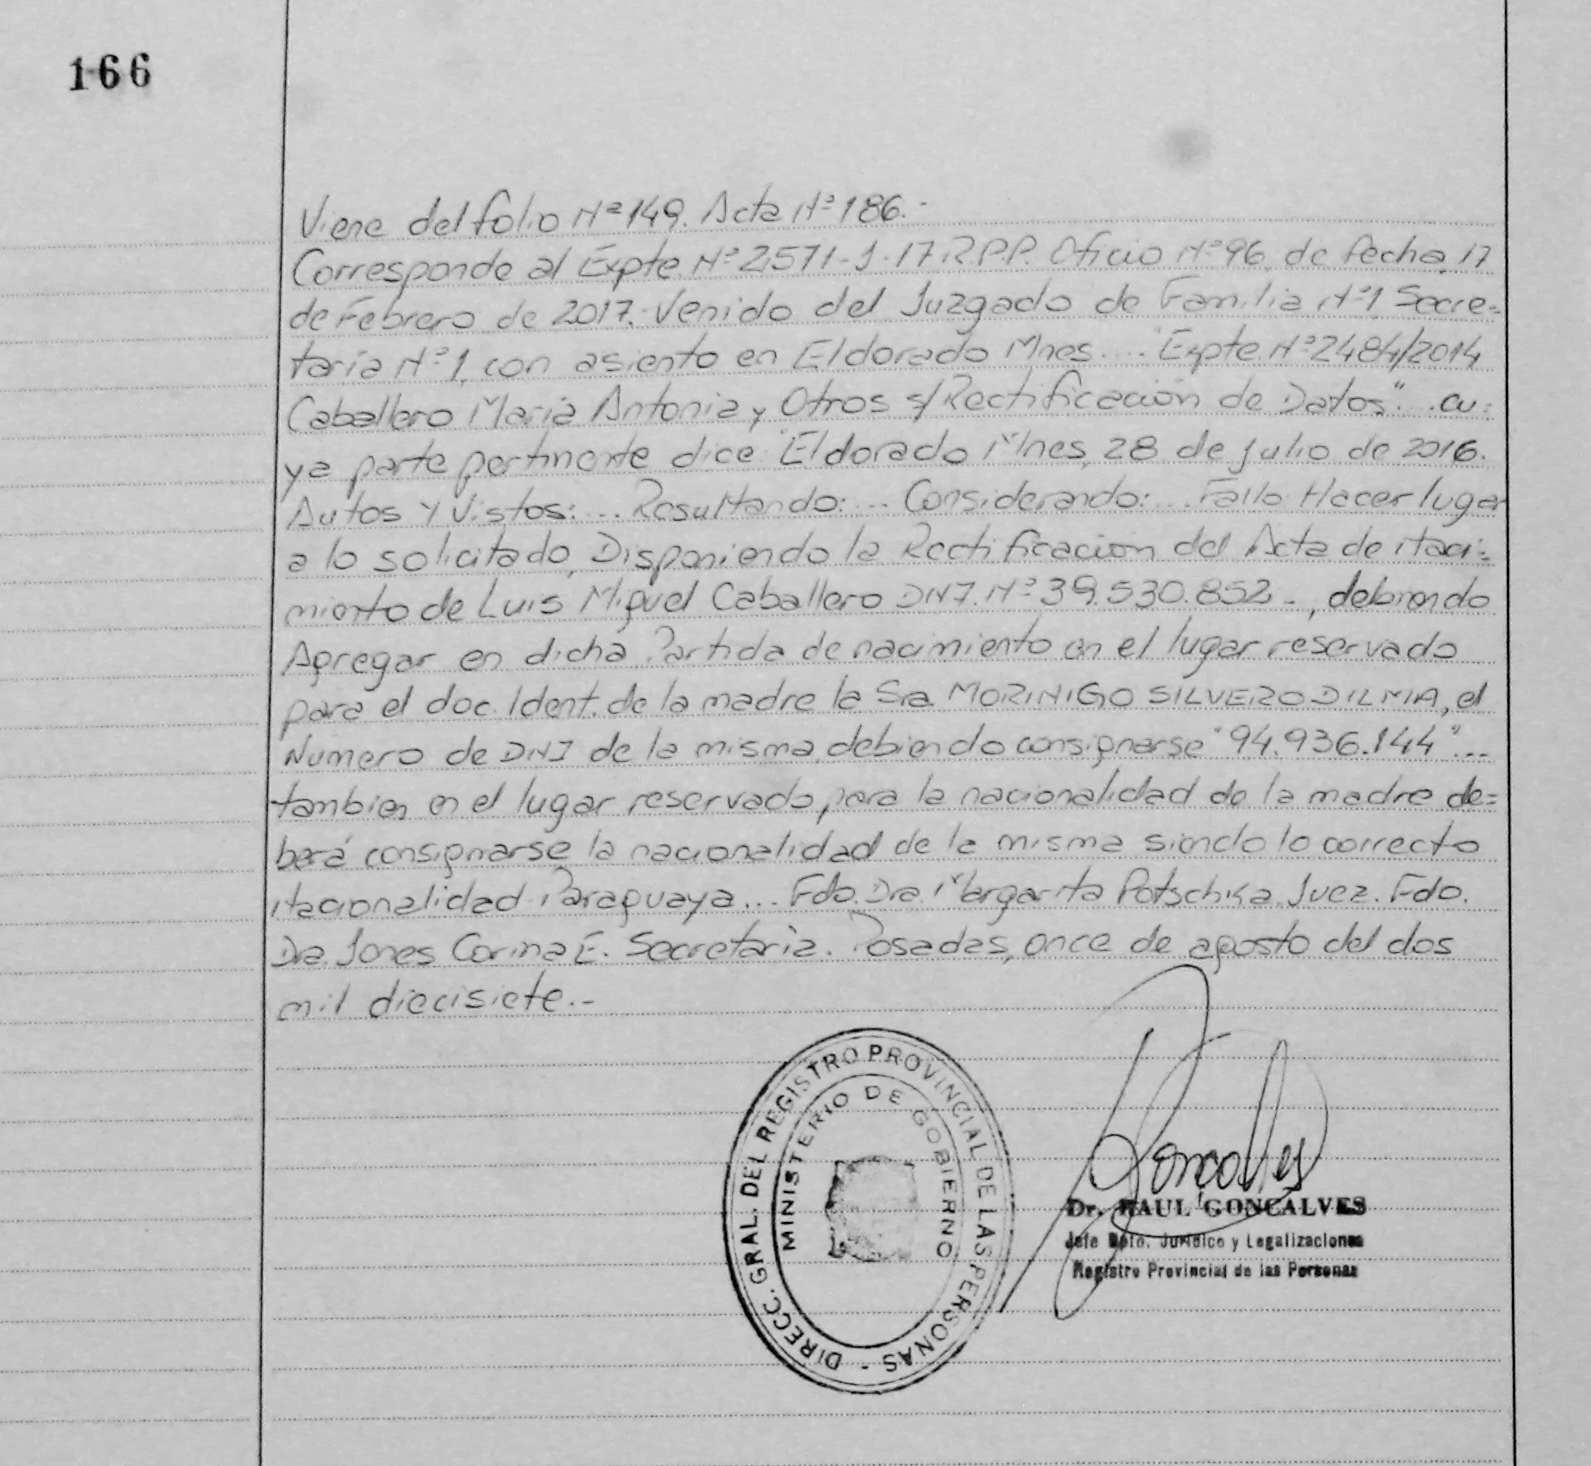 166
Viene del folio Nº 149. Acta Nº 186.-
Corresponde al Expte. Nº 2571-J-17.R.P.P. Oficio Nº 96, de fecha, 17
de Febrero de 2017. Venido del Juzgado de Familia Nº 1, Secre=
taría Nº 1, con asiento en Eldorado Mnes.... "Expte. Nº 2484/2014
Caballero Maria Antonia y Otros s/Rectificación de Datos"..cu=
ya parte pertinente dice "Eldorado Mnes, 28 de julio de 2016.
Autos Y Vistos:... Resultando:... Considerando:... Fallo: Hacer lugar
a lo solicitado, Disponiendo la Rectificación del Acta de Naci=
miento de Luis Miguel Caballero DNI. Nº 39.530.852-, debiendo
Agregar en dicha Partida de nacimiento en el lugar reservado
para el doc. Ident. de la madre la Sra. MORINIGO SILVERO DILMA, el
Numero de DNI de la misma, debiendo consignarse "94.936.144"...
tambien en el lugar reservado para la nacionalidad de la madre de=
berá consignarse la nacionalidad de la misma siendo lo correcto
Nacionalidad Paraguaya... Fdo. Dra. Margarita Potschka. Juez. Fdo.
Dra. Jones Corina E. Secretaria. Posadas, once de agosto del dos
mil diecisiete.-
DIRECC. GRAL. DEL REGISTRO PROVINCIAL DE LAS PERSONAS -
MINISTERIO DE GOBIERNO
Goncalves
Dr. RAUL GONCALVES
Jefe Dpto. Jurídico y Legalizaciones
Registro Provincial de las Personas